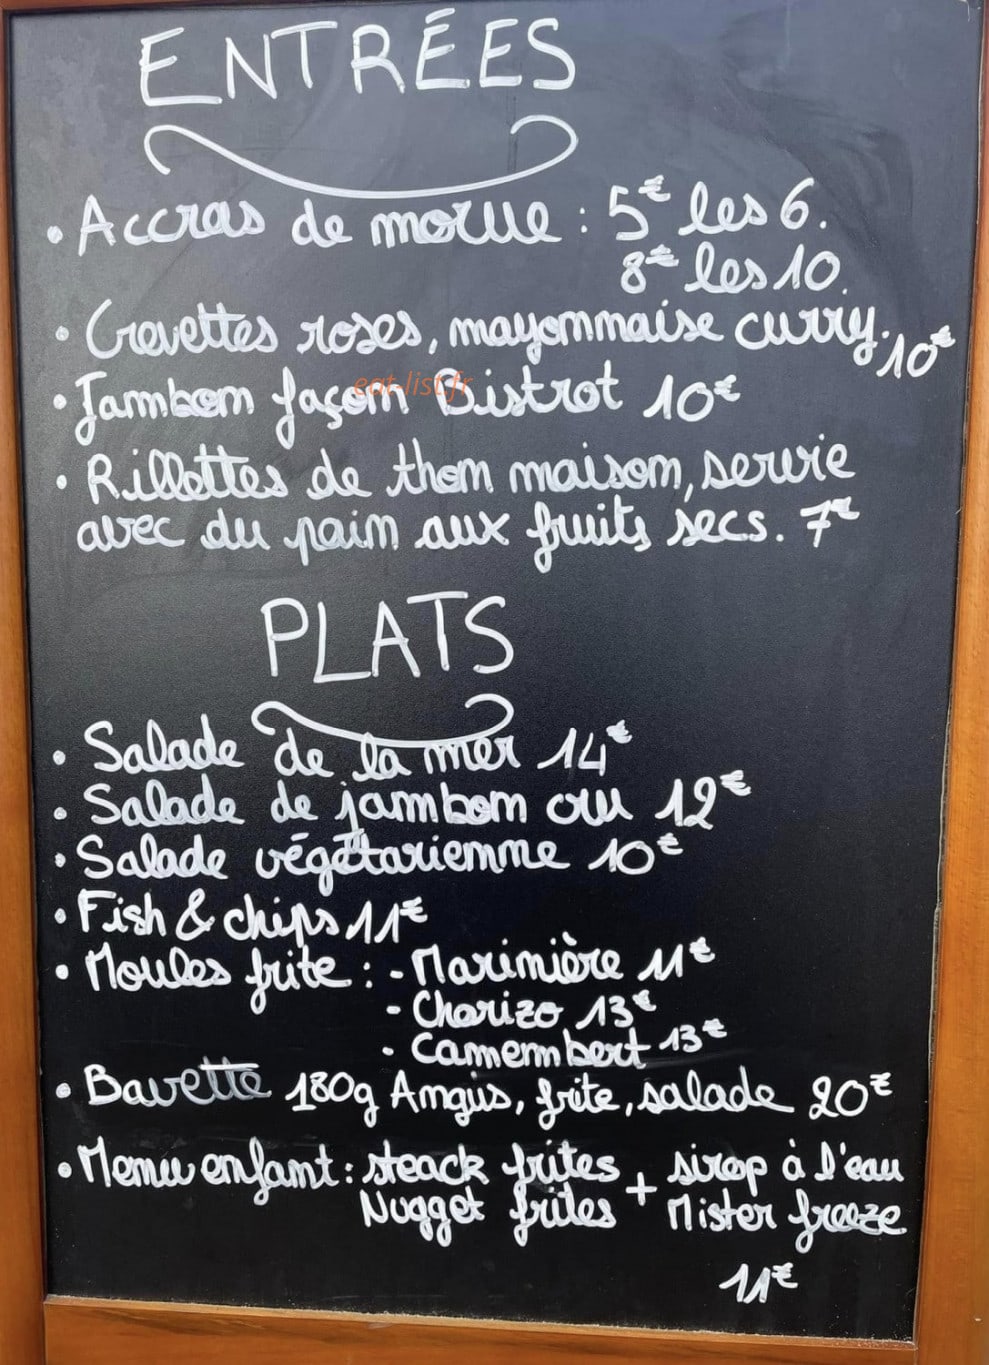 ENTRÉES
• Accras de morue : 5€ les 6.
8€ les 10.
• Crevettes roses, mayonnaise curry. 10€
eat-list.fr
• Jambon façon Bistrot 10€
• Rillettes de thon maison, servie
avec du pain aux fruits secs. 7€
PLATS
• Salade de la mer 14€
• Salade de jambon ou 12€
• Salade végétarienne 10€
• Fish & chips 11€
• Moules frite : - Marinière 11€
- Chorizo 13€
- Camembert 13€
• Bavette 180g Angus, frite, salade 20€
• Menu enfant : steack frites + sirop à l'eau
Nugget frites Mister freeze
11€